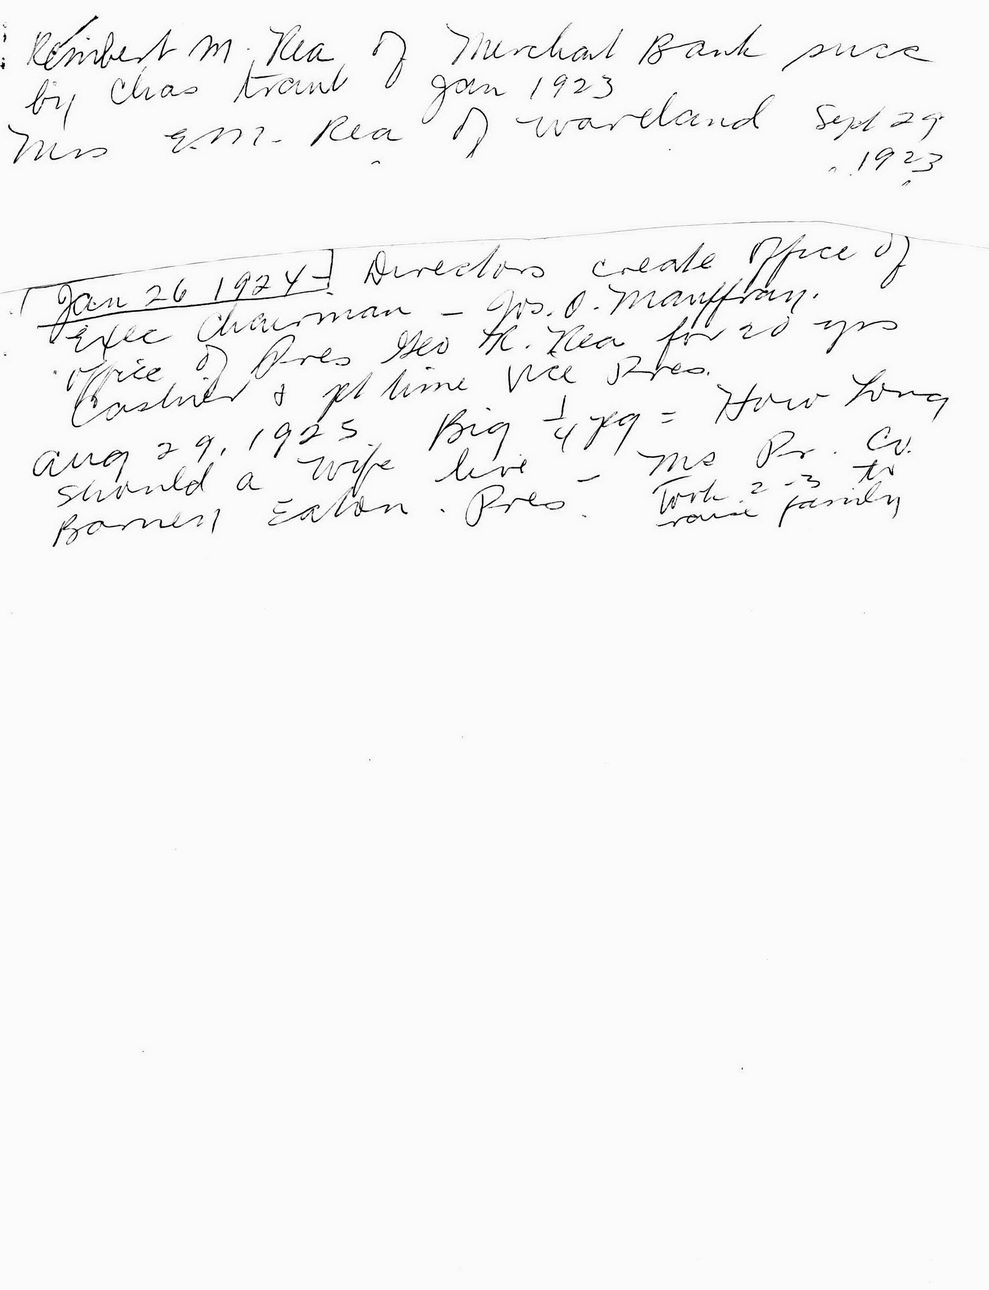 Rembert M. Rea of Merchant Bank succ
by Chas Traub Jan 1923
Mrs E.M. Rea of Waveland Sept 29
1923
Jan 26 1924 - Directors create office of
Exec Chairman - Jos. O. Mauffray.
Office of Pres Geo R. Rea for 20 yrs
Cashier & pt time Vice Pres.
Aug 29, 1925 Big 1/4 pg = How Long
should a wife live - Ms Pr. Co.
Took 2-3 to
Eaton. Pres. raise family